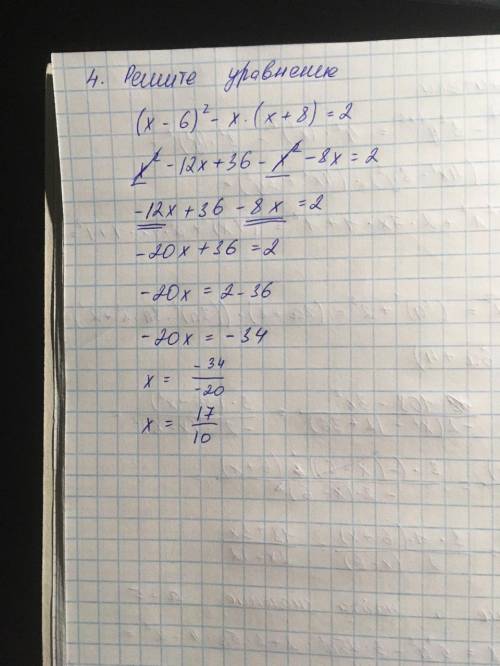 4. Решите уравнение
(x - 6)² - x · (x + 8) = 2
x² - 12x + 36 - x² - 8x = 2
-12x + 36 - 8x = 2
-20x + 36 = 2
-20x = 2 - 36
-20x = -34
x = -34/-20
x = 17/10